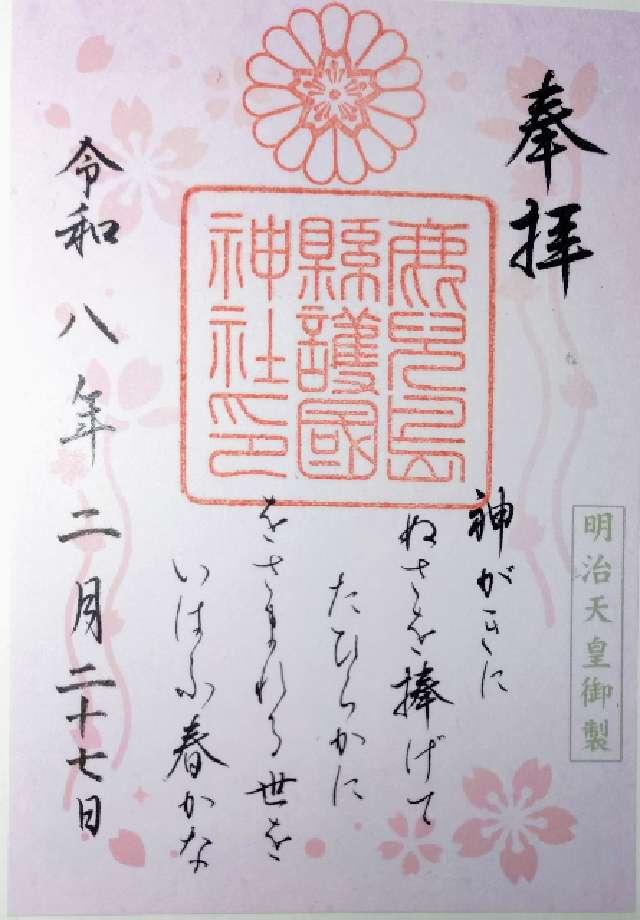 奉拝
明治天皇御製
鹿兒島
縣護國
神社印
神がきに
ぬさを捧げて
たひらかに
をさまれる世を
いはふ春かな
令和八年二月二十七日